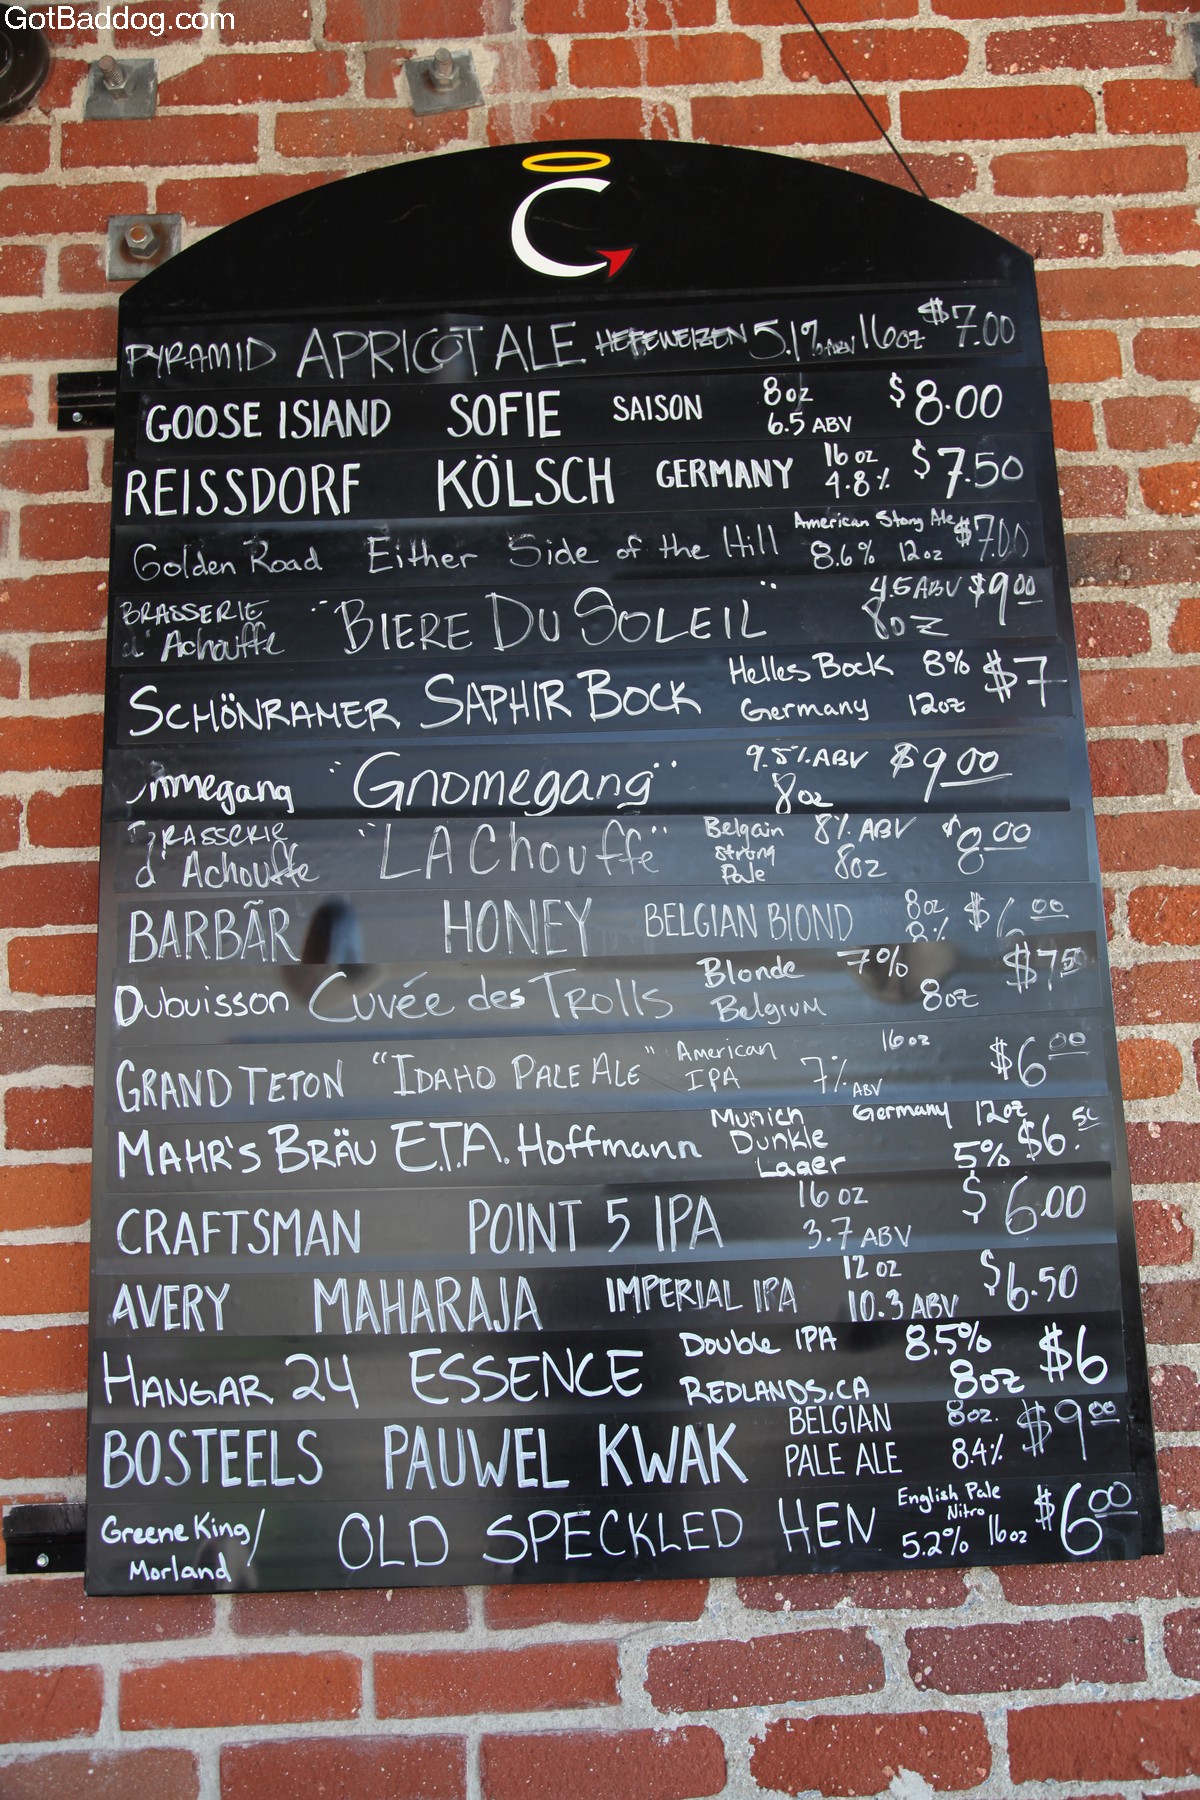 GotBaddog.com
C
PYRAMID APRICOT ALE HEFEWEIZEN 5.1% ABV 16oz $7.00
GOOSE ISLAND SOFIE SAISON 8oz 6.5 ABV $8.00
REISSDORF KÖLSCH GERMANY 16 oz 4.8% $7.50
Golden Road Either Side of the Hill American Strong Ale 8.6% 12oz $7.00
BRASSERIE d'Achouffe "BIERE DU SOLEIL" 4.5 ABV 8oz $9.00
SCHÖNRAMER SAPHIR BOCK Helles Bock Germany 8% 12oz $7
mmegang "Gnomegang" 9.5% ABV 8oz $9.00
BRASSERIE d'Achouffe "LA Chouffe" Belgain strong Pale 8% ABV 8oz $8.00
BARBÃR HONEY BELGIAN BLOND 8oz 8% $6.00
Dubuisson Cuvée des Trolls Blonde Belgium 7% 8oz $7.50
GRAND TETON "IDAHO PALE ALE" American IPA 7% ABV 16oz $6.00
MAHR'S BRÄU E.T.A. Hoffmann Munich Dunkle Lager Germany 12oz 5% $6.50
CRAFTSMAN POINT 5 IPA 16 oz 3.7 ABV $6.00
AVERY MAHARAJA IMPERIAL IPA 12 oz 10.3 ABV $6.50
HANGAR 24 ESSENCE Double IPA REDLANDS, CA 8.5% 8oz $6
BOSTEELS PAUWEL KWAK BELGIAN PALE ALE 8oz. 8.4% $9.00
Greene King/ Morland OLD SPECKLED HEN English Pale Nitro 5.2% 16oz $6.00